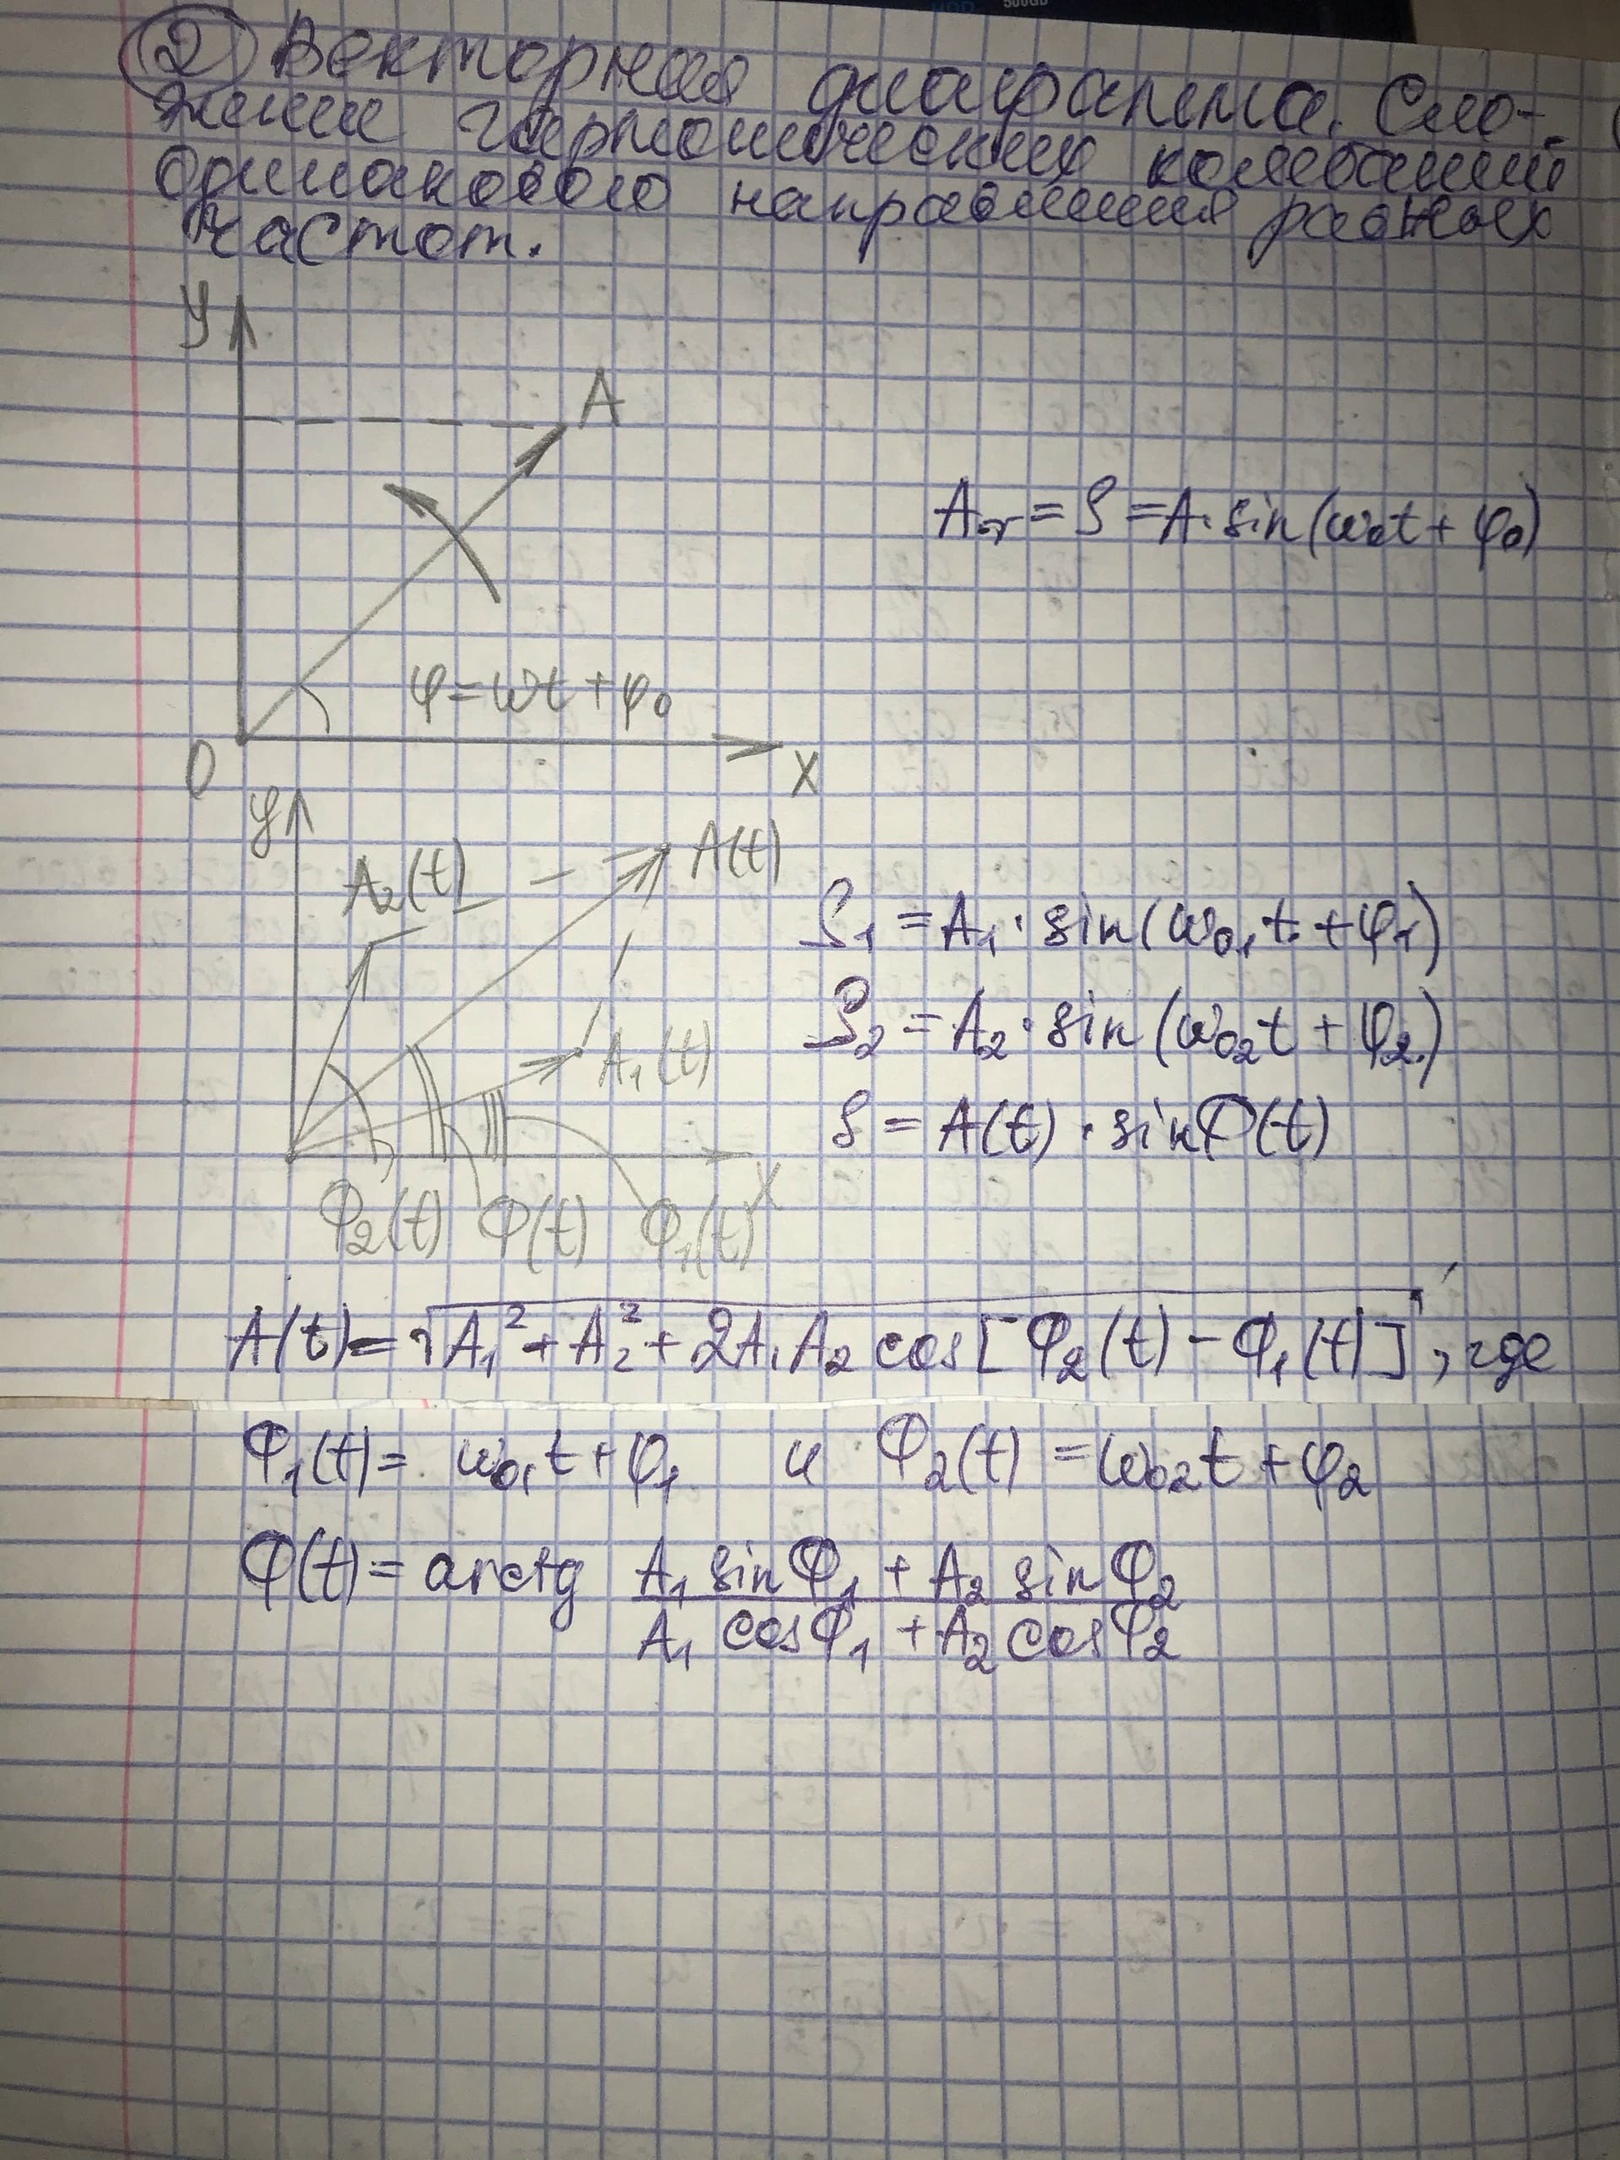 500GB
② Векторная диаграмма. Сло-
жение гармонических колебаний
одинакового направления разных
частот.
y
A
A = S = A · sin(ω₀t + φ₀)
φ = ωt + φ₀
O
x
y
A₂(t)
A(t)
S₁ = A₁ · sin(ω₀₁t + φ₁)
S₂ = A₂ · sin(ω₀₂t + φ₂)
A₁(t)
S = A(t) · sin Φ(t)
x
Φ₂(t) Φ(t) Φ₁(t)
A(t) = √A₁² + A₂² + 2A₁A₂ cos[Φ₂(t) − Φ₁(t)], где
Φ₁(t) = ω₀₁t + φ₁ и Φ₂(t) = ω₀₂t + φ₂
Φ(t) = arctg A₁ sinΦ₁ + A₂ sinΦ₂
A₁ cosΦ₁ + A₂ cosΦ₂